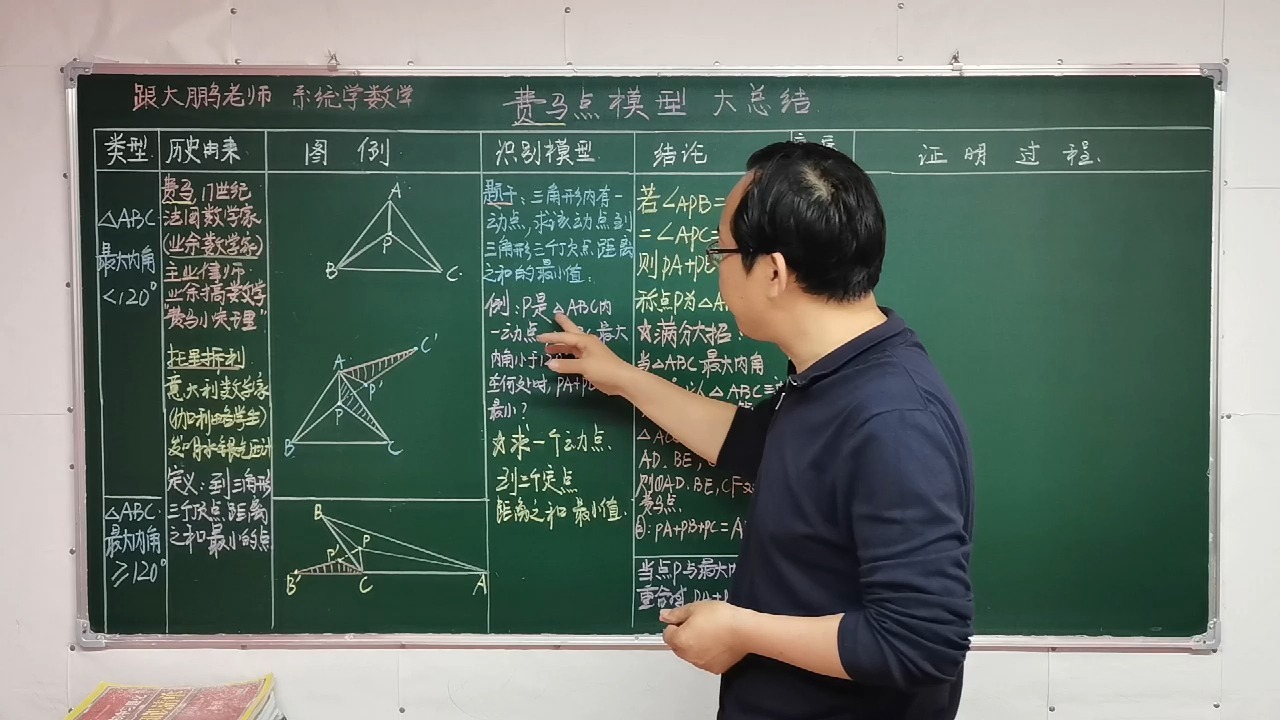 跟大鹏老师 系统学数学
费马点模型 大总结
类型
历史由来
图 例
识别模型
结论
证明过程.
△ABC
最大内角
<120°
费马 17世纪
法国数学家
(业余数学家)
主业律师
业余搞数学
"费马小定理"
托里拆利
意大利数学家
(伽利略学生)
发明水银气压计
定义:到三角形
三个顶点距离
之和最小的点
A
P
B
C
A
C'
P'
P
B
C
题干:三角形内有一
动点,求该动点到
三角形三个顶点距离
之和的最小值.
例:P是△ABC内
一动点
最大
内角小于12
在何处时,PA+P
最小?
☆求一个动点.
到三个定点
距离之和最小值.
若∠APB=
=∠APC=
则PA+P
称点P为△A
☆满分大招:
当△ABC最大内角
以△ABC三
AD.BE,
则①AD.BE,CF
费马点
②:PA+PB+PC=A
△ABC
最大内角
≥120°
B
P'
P
B'
C
A
当点P与最大内
重合时 PA+